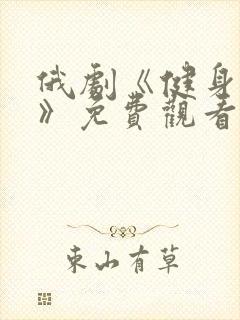 俄劇《健身
》免費觀看
東山有草